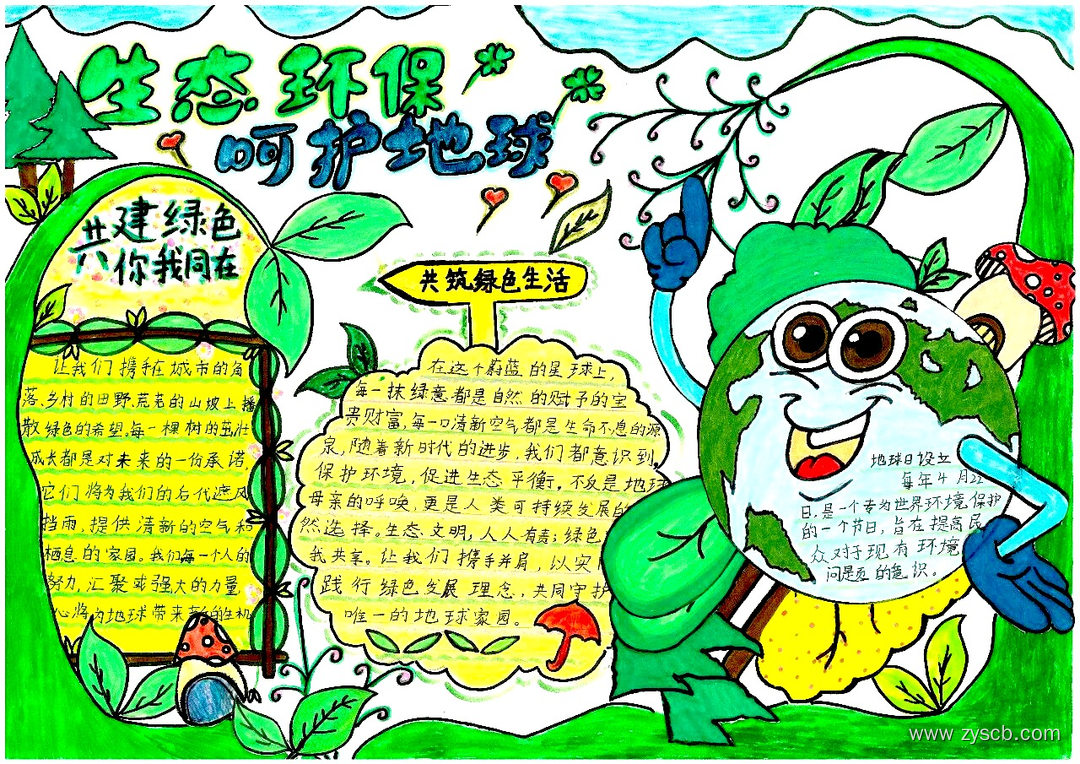 生态环保
呵护地球
共建绿色
你我同在
让我们携手在城市的角
落、乡村的田野、荒芜的山坡上播
散绿色的希望,每一棵树的茁壮
成长都是对未来的一份承诺,
它们将为我们的后代遮风
挡雨,提供清新的空气和
栖息的家园。我们每一个人的
努力,汇聚成强大的力量
心将为地球带来新的生机
共筑绿色生活
在这个蔚蓝的星球上,
每一抹绿意都是自然的赋予的宝
贵财富,每一口清新空气都是生命不息的源
泉,随着新时代的进步,我们都意识到,
保护环境,促进生态平衡,不仅是地球
母亲的呼唤,更是人类可持续发展的
然选择。生态文明,人人有责;绿色
我共享。让我们携手并肩,以实
践行绿色发展理念,共同守护
唯一的地球家园。
地球日设立
每年4月22
日,是一个专为世界环境保护
的一个节日,旨在提高民
众对于现有环境
问题的意识。
www.zyscb.com